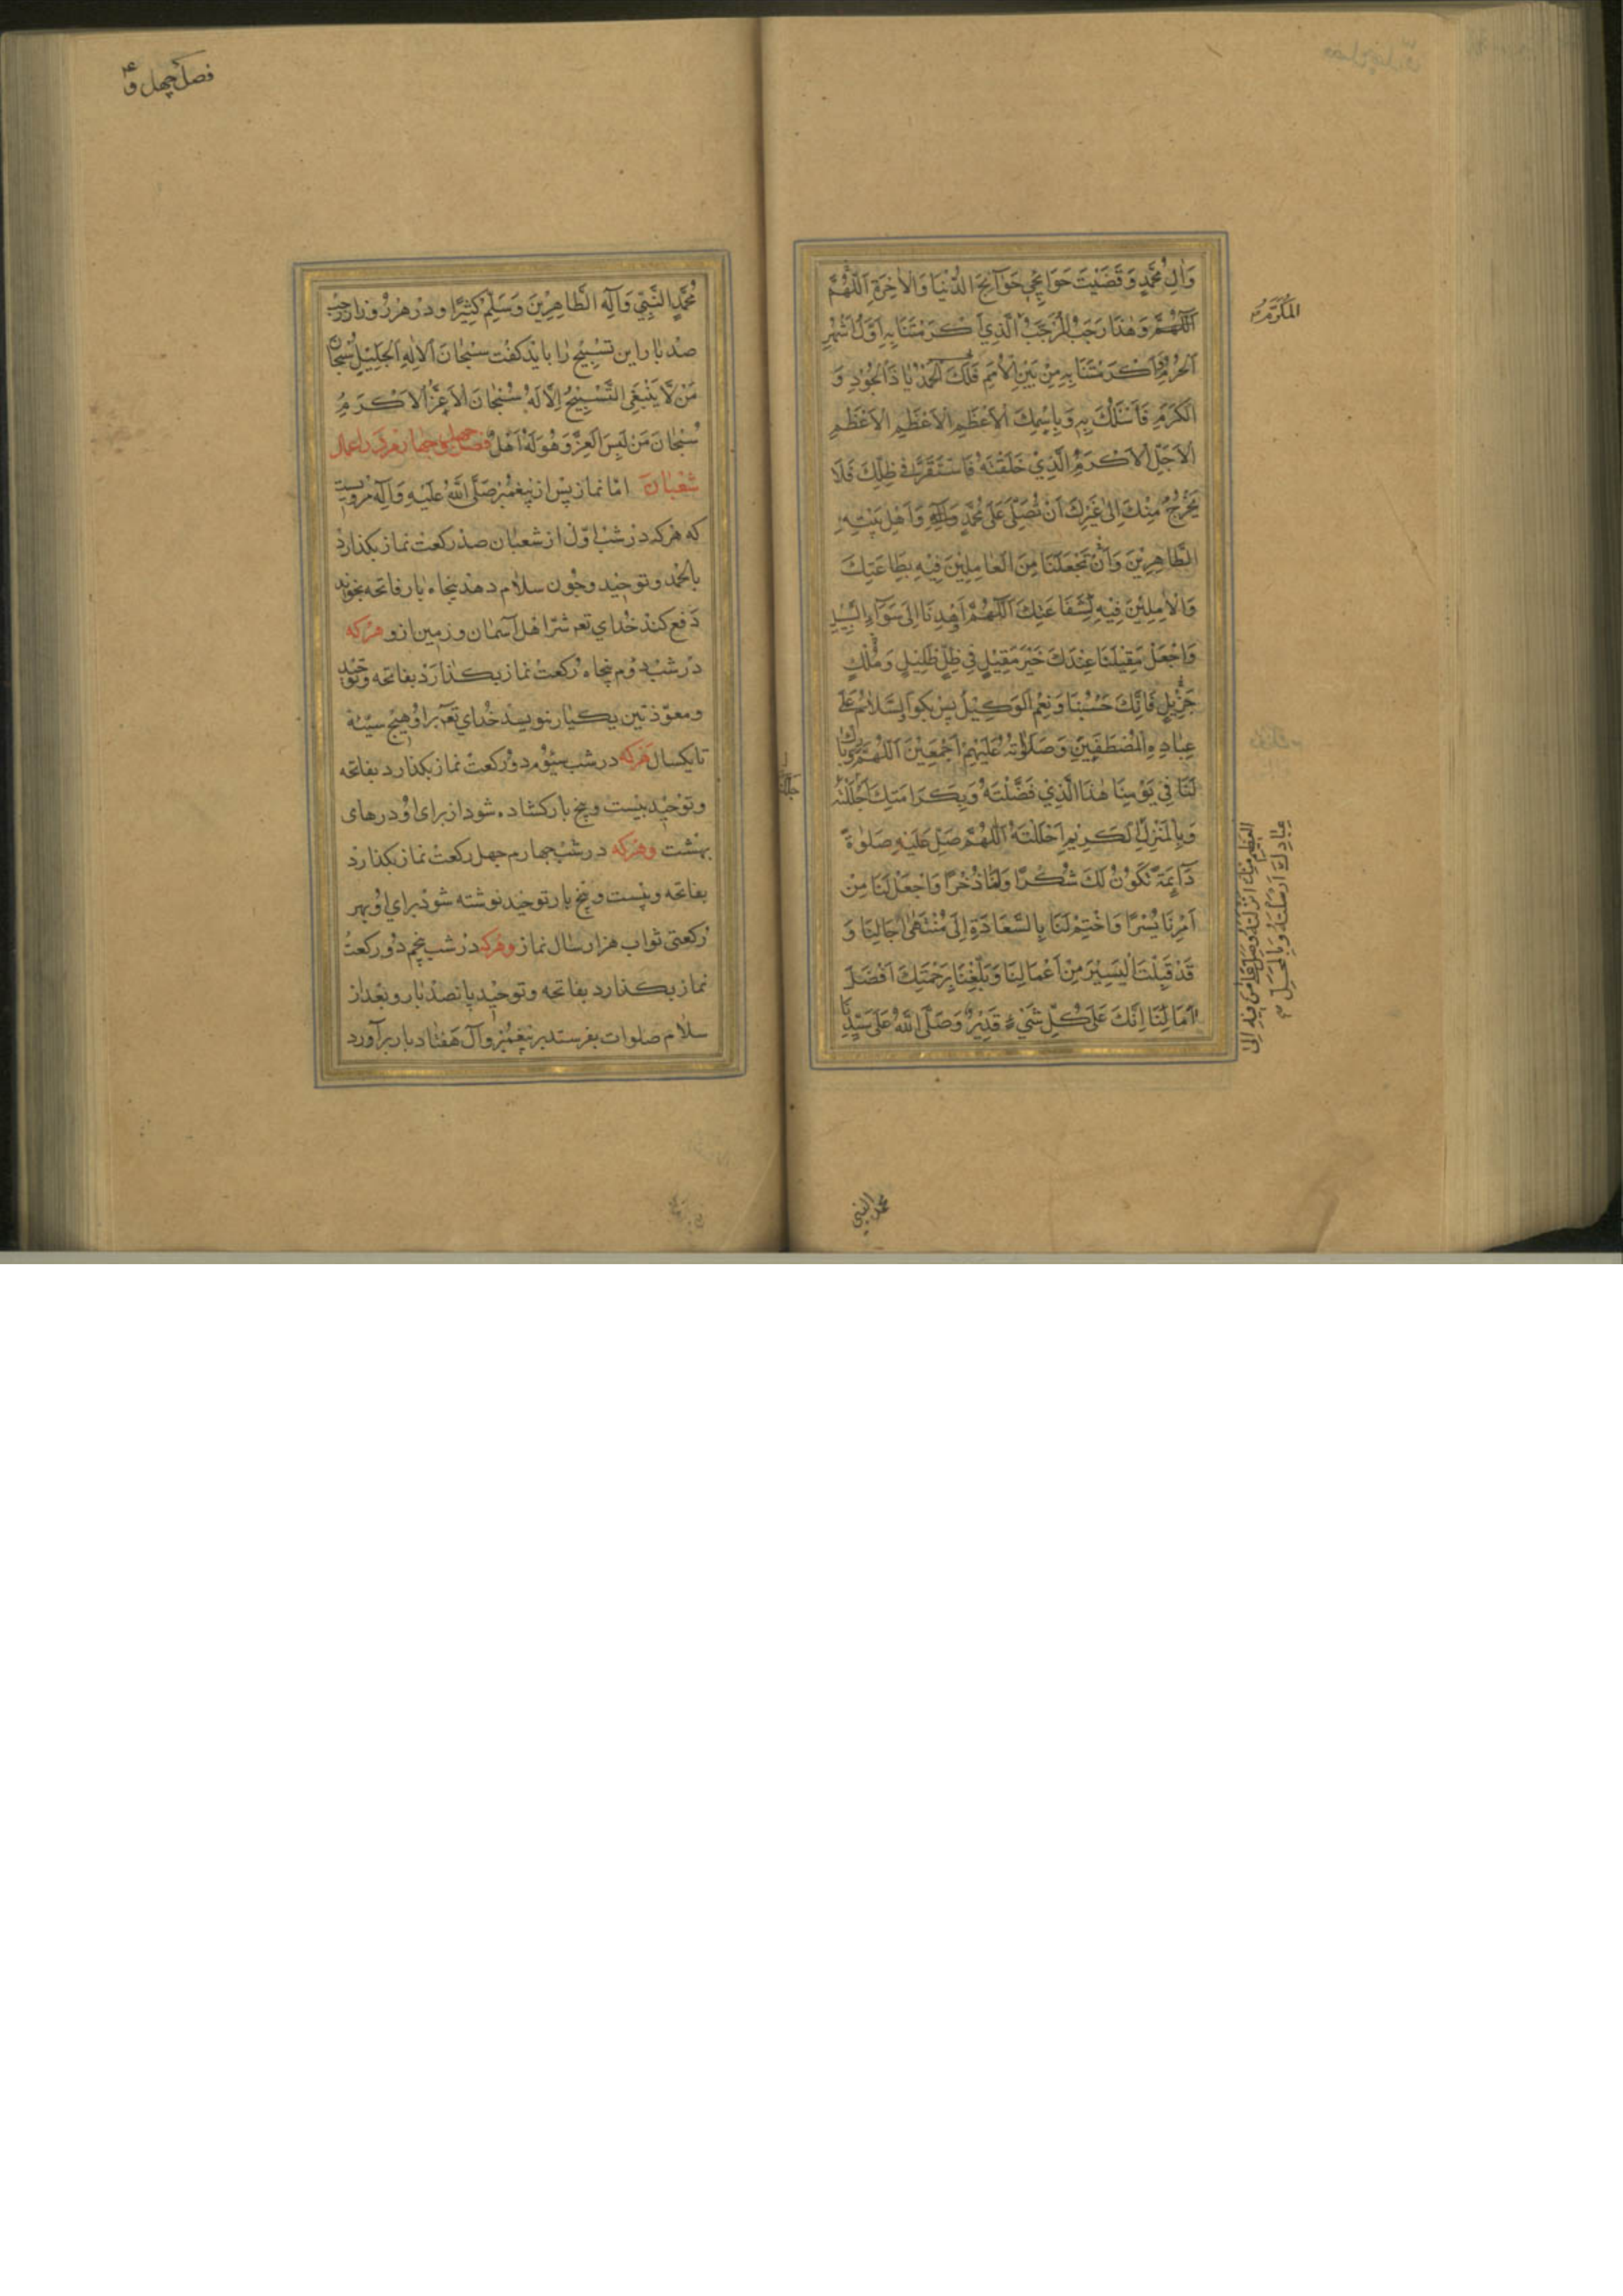 وَاٰلِ مُحَمَّدٍ وَقَضَيْتَ حَوَائِجِي حَوَآئِجَ الدُّنْيَا وَالْاٰخِرَةِ اَللّٰهُمَّ
اَللّٰهُمَّ وَهٰذَا رَجَبُ الْمُرَجَّبُ الَّذِي اَكْرَمْتَنَا بِهِ اَوَّلُ اَشْهُرِ
الْمُكَرَّمُ
الْحُرُمِ اَكْرَمْتَنَا بِهِ مِنْ بَيْنِ الْاُمَمِ فَلَكَ الْحَمْدُ يَا ذَا الْجُوْدِ وَ
الْكَرَمِ فَاَسْئَلُكَ بِهِ وَبِاِسْمِكَ الْاَعْظَمِ الْاَعْظَمِ الْاَعْظَمِ
الْاَجَلِّ الْاَكْرَمِ الَّذِيْ خَلَقْتَهُ فَاسْتَقَرَّ فِي ظِلِّكَ فَلَا
يَخْرُجُ مِنْكَ اِلٰى غَيْرِكَ اَنْ تُصَلِّيَ عَلٰى مُحَمَّدٍ وَاَهْلِ بَيْتِهِ
الطَّاهِرِيْنَ وَاَنْ تَجْعَلَنَا مِنَ الْعَامِلِيْنَ فِيْهِ بِطَاعَتِكَ
وَالْاٰمِلِيْنَ فِيْهِ لِشَفَاعَتِكَ اَللّٰهُمَّ اهْدِنَا اِلٰى سَوَآءِ السَّبِيْلِ
وَاجْعَلْ مَقِيْلَنَا عِنْدَكَ خَيْرَ مَقِيْلٍ فِي ظِلٍّ ظَلِيْلٍ وَمُلْكٍ
جَزِيْلٍ فَاِنَّكَ حَسْبُنَا وَنِعْمَ الْوَكِيْلُ پس بگو اَلسَّلَامُ عَلٰى
عِبَادِهِ الْمُصْطَفَيْنَ وَصَلَوٰتُهُ عَلَيْهِمْ اَجْمَعِيْنَ اَللّٰهُمَّ وَبَارِكْ
لَنَا فِيْ يَوْمِنَا هٰذَا الَّذِيْ فَضَّلْتَهُ وَبِكَرَامَتِكَ جَلَّلْتَهُ
وَبِالْمَنْزِلِ الْكَرِيْمِ اَحْلَلْتَهُ اَللّٰهُمَّ صَلِّ عَلَيْهِ صَلٰوةً
دَآئِمَةً تَكُوْنُ لَكَ شُكْرًا وَلَنَا ذُخْرًا وَاجْعَلْ لَنَا مِنْ
اَمْرِنَا يُسْرًا وَاخْتِمْ لَنَا بِالسَّعَادَةِ اِلٰى مُنْتَهٰى اٰجَالِنَا وَ
قَدْ قَبِلْتَ الْيَسِيْرَ مِنْ اَعْمَالِنَا وَبَلِّغْنَا بِرَحْمَتِكَ اَفْضَلَ
اٰمَالِنَا اِنَّكَ عَلٰى كُلِّ شَيْءٍ قَدِيْرٌ وَصَلَّى اللّٰهُ عَلٰى سَيِّدِنَا
عِبَادِكَ اَرْسَلْتَهُ وَبِالْمَحَلِّ
محمد النبي
فصل چهل و ۴
مُحَمَّدٍ النَّبِيِّ وَآلِهِ الطَّاهِرِيْنَ وَسَلِّمْ كَثِيْرًا و در هر روز از رجب
صد بار این تسبیح را باید گفت سُبْحَانَ الْاِلٰهِ الْجَلِيْلِ سُبْحَانَ
مَنْ لَا يَنْبَغِي التَّسْبِيْحُ اِلَّا لَهُ سُبْحَانَ الْاَعَزِّ الْاَكْرَمِ
سُبْحَانَ مَنْ لَبِسَ الْعِزَّ وَهُوَ لَهُ اَهْلٌ فصل چهل و چهارم در اعمال
شعبان اما نماز پس از پیغمبر صَلَّى اللّٰهُ عَلَيْهِ وَآلِهِ مرویست
که هر که در شب اوّل از شعبان صد رکعت نماز بگذارد
بالحمد و توحید و چون سلام دهد پنجاه بار فاتحه بخواند
دفع کند خدای تعم شرّ اهل آسمان و زمین ازو هر که
در شب دوم پنجاه رکعت نماز بگذارد بفاتحه و توحید
و معوّذتین یکبار ننویسد خدای تعم برا و هیچ سیئه
تا یکسال هر که در شب سیوم دو رکعت نماز بگذارد بفاتحه
و توحید بیست و پنج بار گشاده شود از برای او درهای
بهشت و هر که در شب چهارم چهل رکعت نماز بگذارد
بفاتحه و بیست و پنج بار توحید نوشته شود برای او بهر
رکعتی ثواب هزار سال نماز و هر که در شب پنجم دو رکعت
نماز بگذارد بفاتحه و توحید پانصد بار و بعد از
سلام صلوات بفرستد بر پیغمبر و آل هفتاد بار برآورد